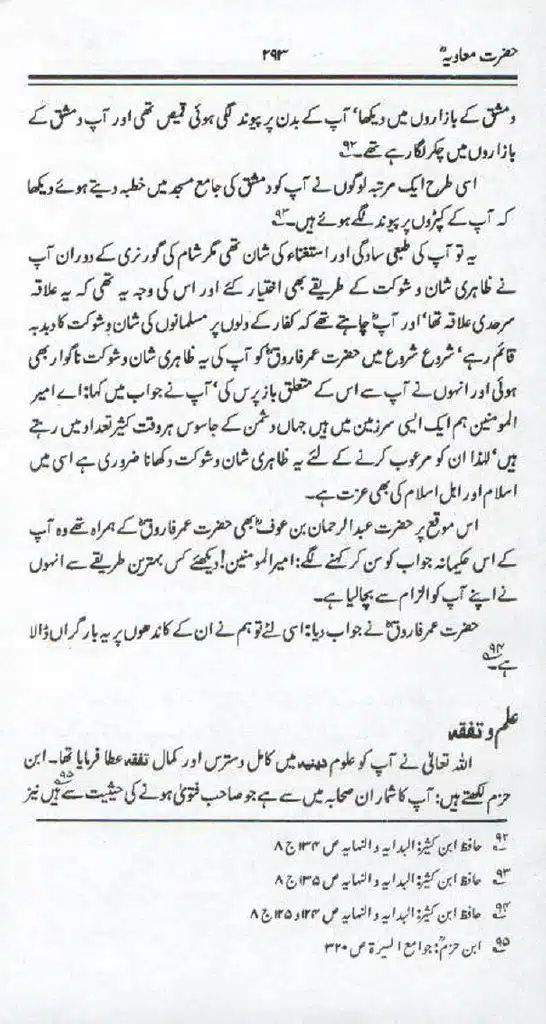 حضرت معاویہؓ
۲۹۳
دمشق کے بازاروں میں دیکھا، آپ کے بدن پر پیوند لگی ہوئی قمیص تھی اور آپ دمشق کے
بازاروں میں چکر لگا رہے تھے۔۹۲
اسی طرح ایک مرتبہ لوگوں نے آپ کو دمشق کی جامع مسجد میں خطبہ دیتے ہوئے دیکھا
کہ آپ کے کپڑوں پر پیوند لگے ہوئے ہیں۔۹۳
یہ تو آپ کی طبعی سادگی اور استغناء کی شان تھی مگر شام کی گورنری کے دوران آپ
نے ظاہری شان و شوکت کے طریقے بھی اختیار کئے اور اس کی وجہ یہ تھی کہ یہ علاقہ
سرحدی علاقہ تھا، اور آپؓ چاہتے تھے کہ کفار کے دلوں پر مسلمانوں کی شان و شوکت کا دبدبہ
قائم رہے، شروع شروع میں حضرت عمر فاروقؓ کو آپ کی یہ ظاہری شان و شوکت ناگوار بھی
ہوئی اور انہوں نے آپ سے اس کے متعلق باز پرس کی، آپ نے جواب میں کہا: اے امیر
المومنین ہم ایک ایسی سرزمین میں ہیں جہاں دشمن کے جاسوس ہر وقت کثیر تعداد میں رہتے
ہیں، لہٰذا ان کو مرعوب کرنے کے لئے یہ ظاہری شان و شوکت دکھانا ضروری ہے اسی میں
اسلام اور اہل اسلام کی بھی عزت ہے۔
اس موقع پر حضرت عبدالرحمان بن عوفؓ بھی حضرت عمر فاروقؓ کے ہمراہ تھے وہ آپ
کے اس حکیمانہ جواب کو سن کر کہنے لگے: امیر المومنین! دیکھئے کس بہترین طریقے سے انہوں
نے اپنے آپ کو الزام سے بچا لیا ہے۔
حضرت عمر فاروقؓ نے جواب دیا: اسی لئے تو ہم نے ان کے کاندھوں پر یہ بار گراں ڈالا
ہے۔۹۴
علم و تفقہ
اللہ تعالیٰ نے آپ کو علوم دینیہ میں کامل دسترس اور کمال تفقہ عطا فرمایا تھا۔ ابن
حزم لکھتے ہیں: آپ کا شمار ان صحابہ میں سے ہے جو صاحب فتویٰ ہونے کی حیثیت سے ہیں۹۵ نیز
۹۲ حافظ ابن کثیرؒ: البدایہ والنہایہ ص ۱۳۴ ج ۸
۹۳ حافظ ابن کثیرؒ: البدایہ والنہایہ ص ۱۳۵ ج ۸
۹۴ حافظ ابن کثیرؒ: البدایہ والنہایہ ص ۱۲۴ و ۱۲۵ ج ۸
۹۵ ابن حزمؒ: جوامع السیرۃ ص ۳۲۰